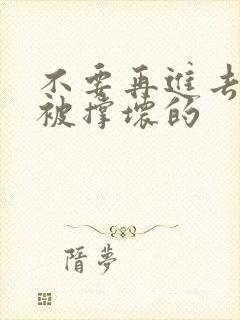 不要再進去
被撑壞的
隋夢